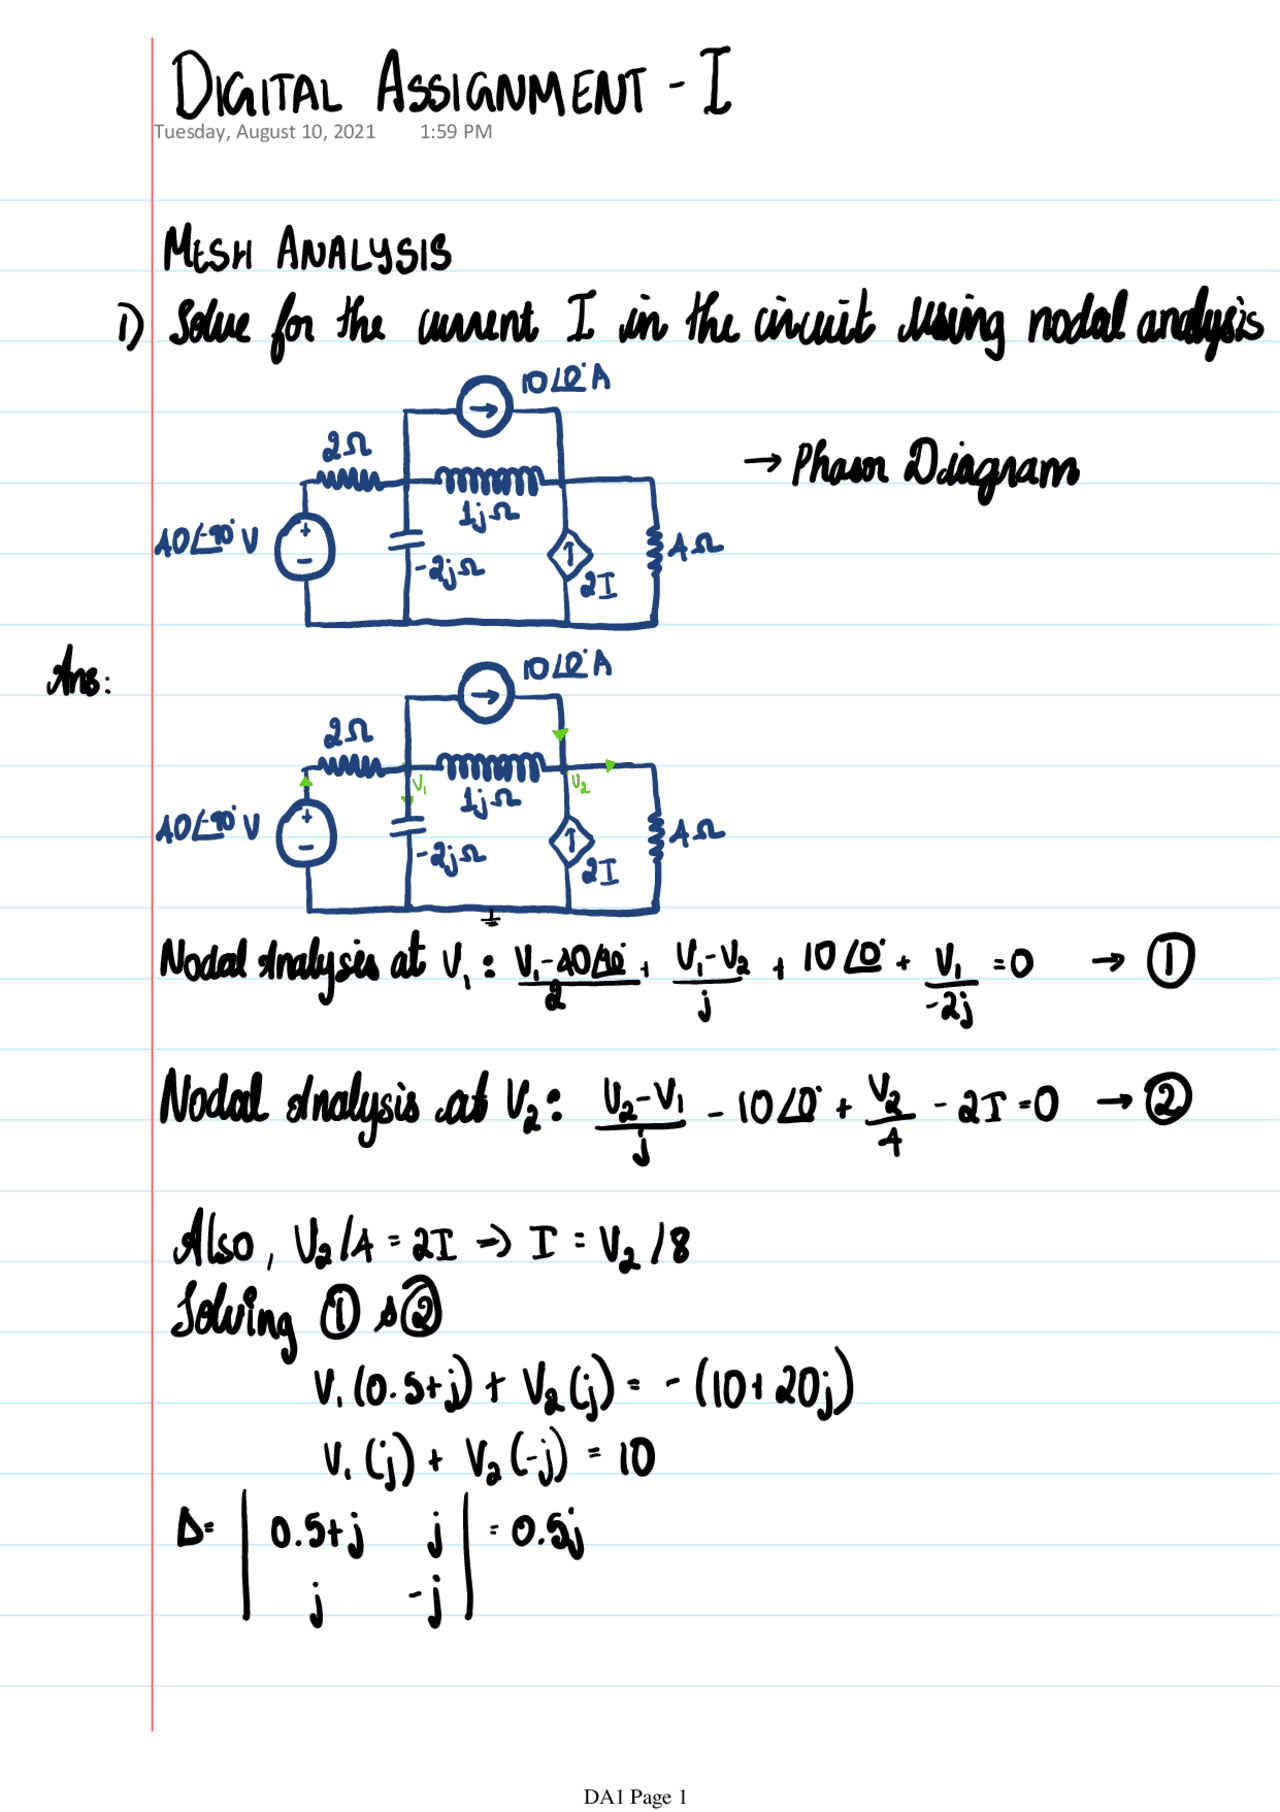 DIGITAL ASSIGNMENT - I
Tuesday, August 10, 2021 1:59 PM
MESH ANALYSIS
1) Solve for the current I in the circuit using nodal analysis
10∠0° A
2Ω
→ Phasor Diagram
1jΩ
40∠-90° V
+
-
-2jΩ
2I
4Ω
Ans:
10∠0° A
2Ω
V₁
V₂
1jΩ
40∠-90° V
+
-
-2jΩ
2I
4Ω
Nodal Analysis at V₁ : (V₁-40∠90°)/2 + (V₁-V₂)/j + 10∠0° + V₁/-2j = 0 → ①
Nodal Analysis at V₂ : (V₂-V₁)/j - 10∠0° + V₂/4 - 2I = 0 → ②
Also, V₂/4 = 2I → I = V₂/8
Solving ① & ②
V₁(0.5+j) + V₂(j) = -(10+20j)
V₁(j) + V₂(-j) = 10
Δ= | 0.5+j j | = 0.5j
| j -j |
DA1 Page 1